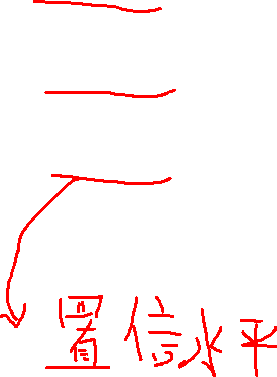 置信水平